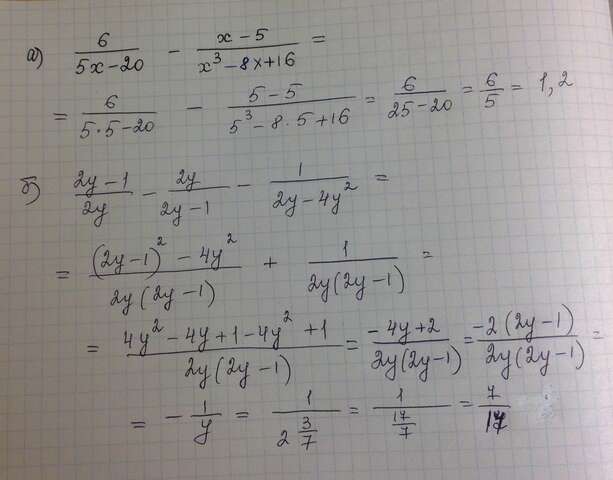 а) 6/(5x−20) − (x−5)/(x³−8x+16) =
= 6/(5·5−20) − (5−5)/(5³−8·5+16) = 6/(25−20) = 6/5 = 1,2
б) (2y−1)/2y − 2y/(2y−1) − 1/(2y−4y²) =
= ((2y−1)²−4y²)/(2y(2y−1)) + 1/(2y(2y−1)) =
= (4y²−4y+1−4y²+1)/(2y(2y−1)) = (−4y+2)/(2y(2y−1)) = (−2(2y−1))/(2y(2y−1)) =
= −1/y = 1/(2 3/7) = 1/(17/7) = 7/17